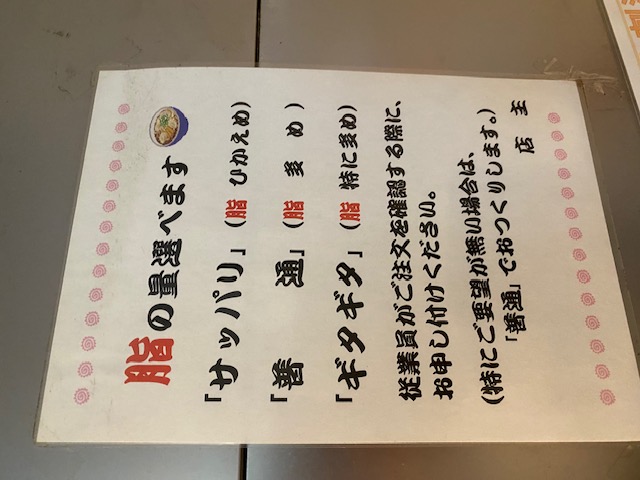 脂の量選べます
「サッパリ」(脂 ひかえめ)
「普 通」(脂 多 め)
「ギタギタ」(脂 特に多め)
従業員がご注文を確認する際に、
お申し付けください。
(特にご要望が無い場合は、
「普通」でおつくりします。)
店 主